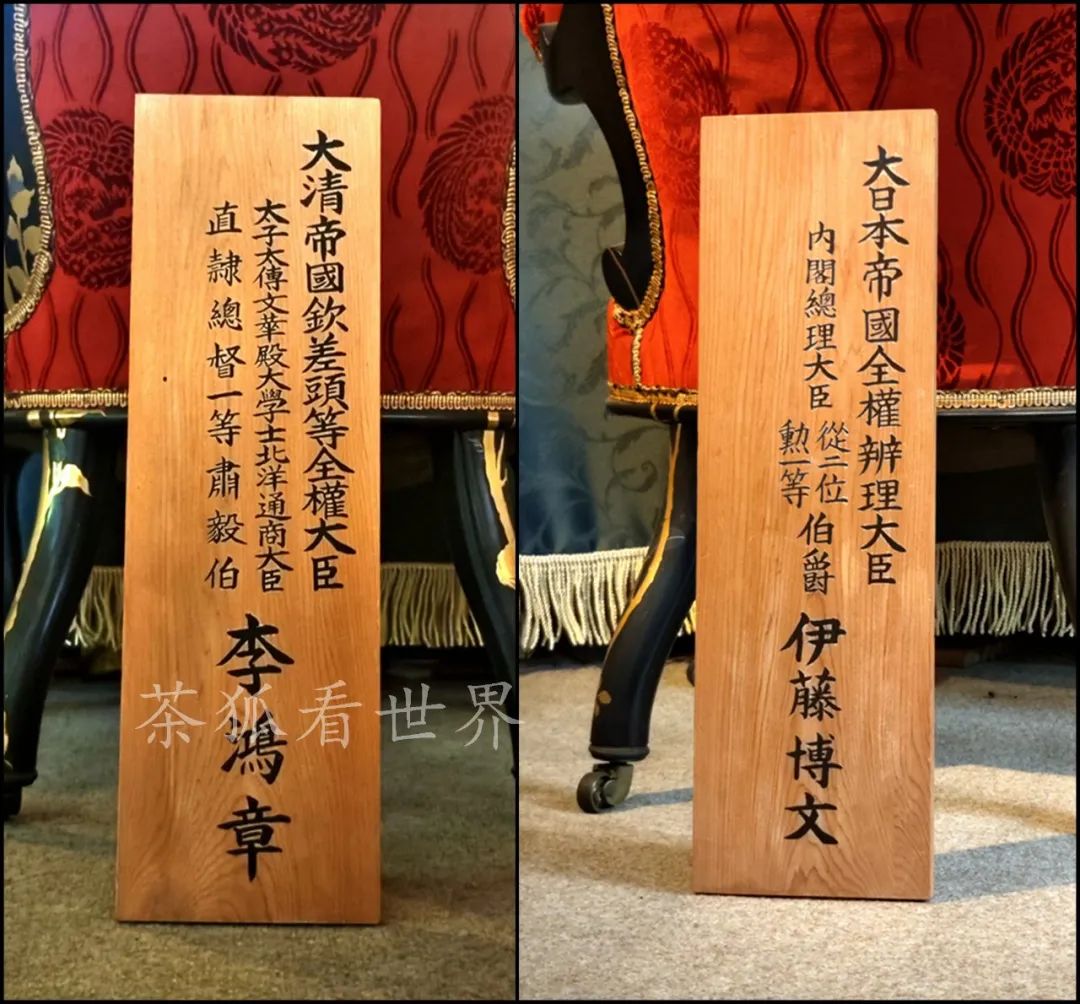 大清帝國欽差頭等全權大臣
太子太傅文華殿大學士北洋通商大臣
直隷總督一等肅毅伯
李鴻章
大日本帝國全權辨理大臣
內閣總理大臣
從二位
勲一等
伯爵
伊藤博文
茶狐看世界